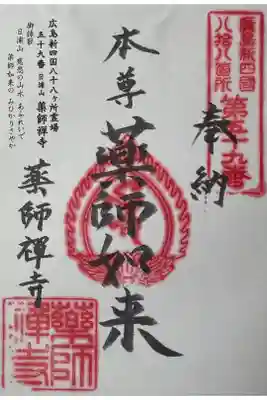 廣島新四國
八拾八箇所
第五十九番
奉納
本尊 薬師如来
広島新四国八十八ヶ所霊場
五十九番 日浦山 薬師禅寺
御詠歌
日浦山 慈悲の山水 あふれいで
薬師如来の みひかりさやか
薬師禅寺
藥師
禅寺